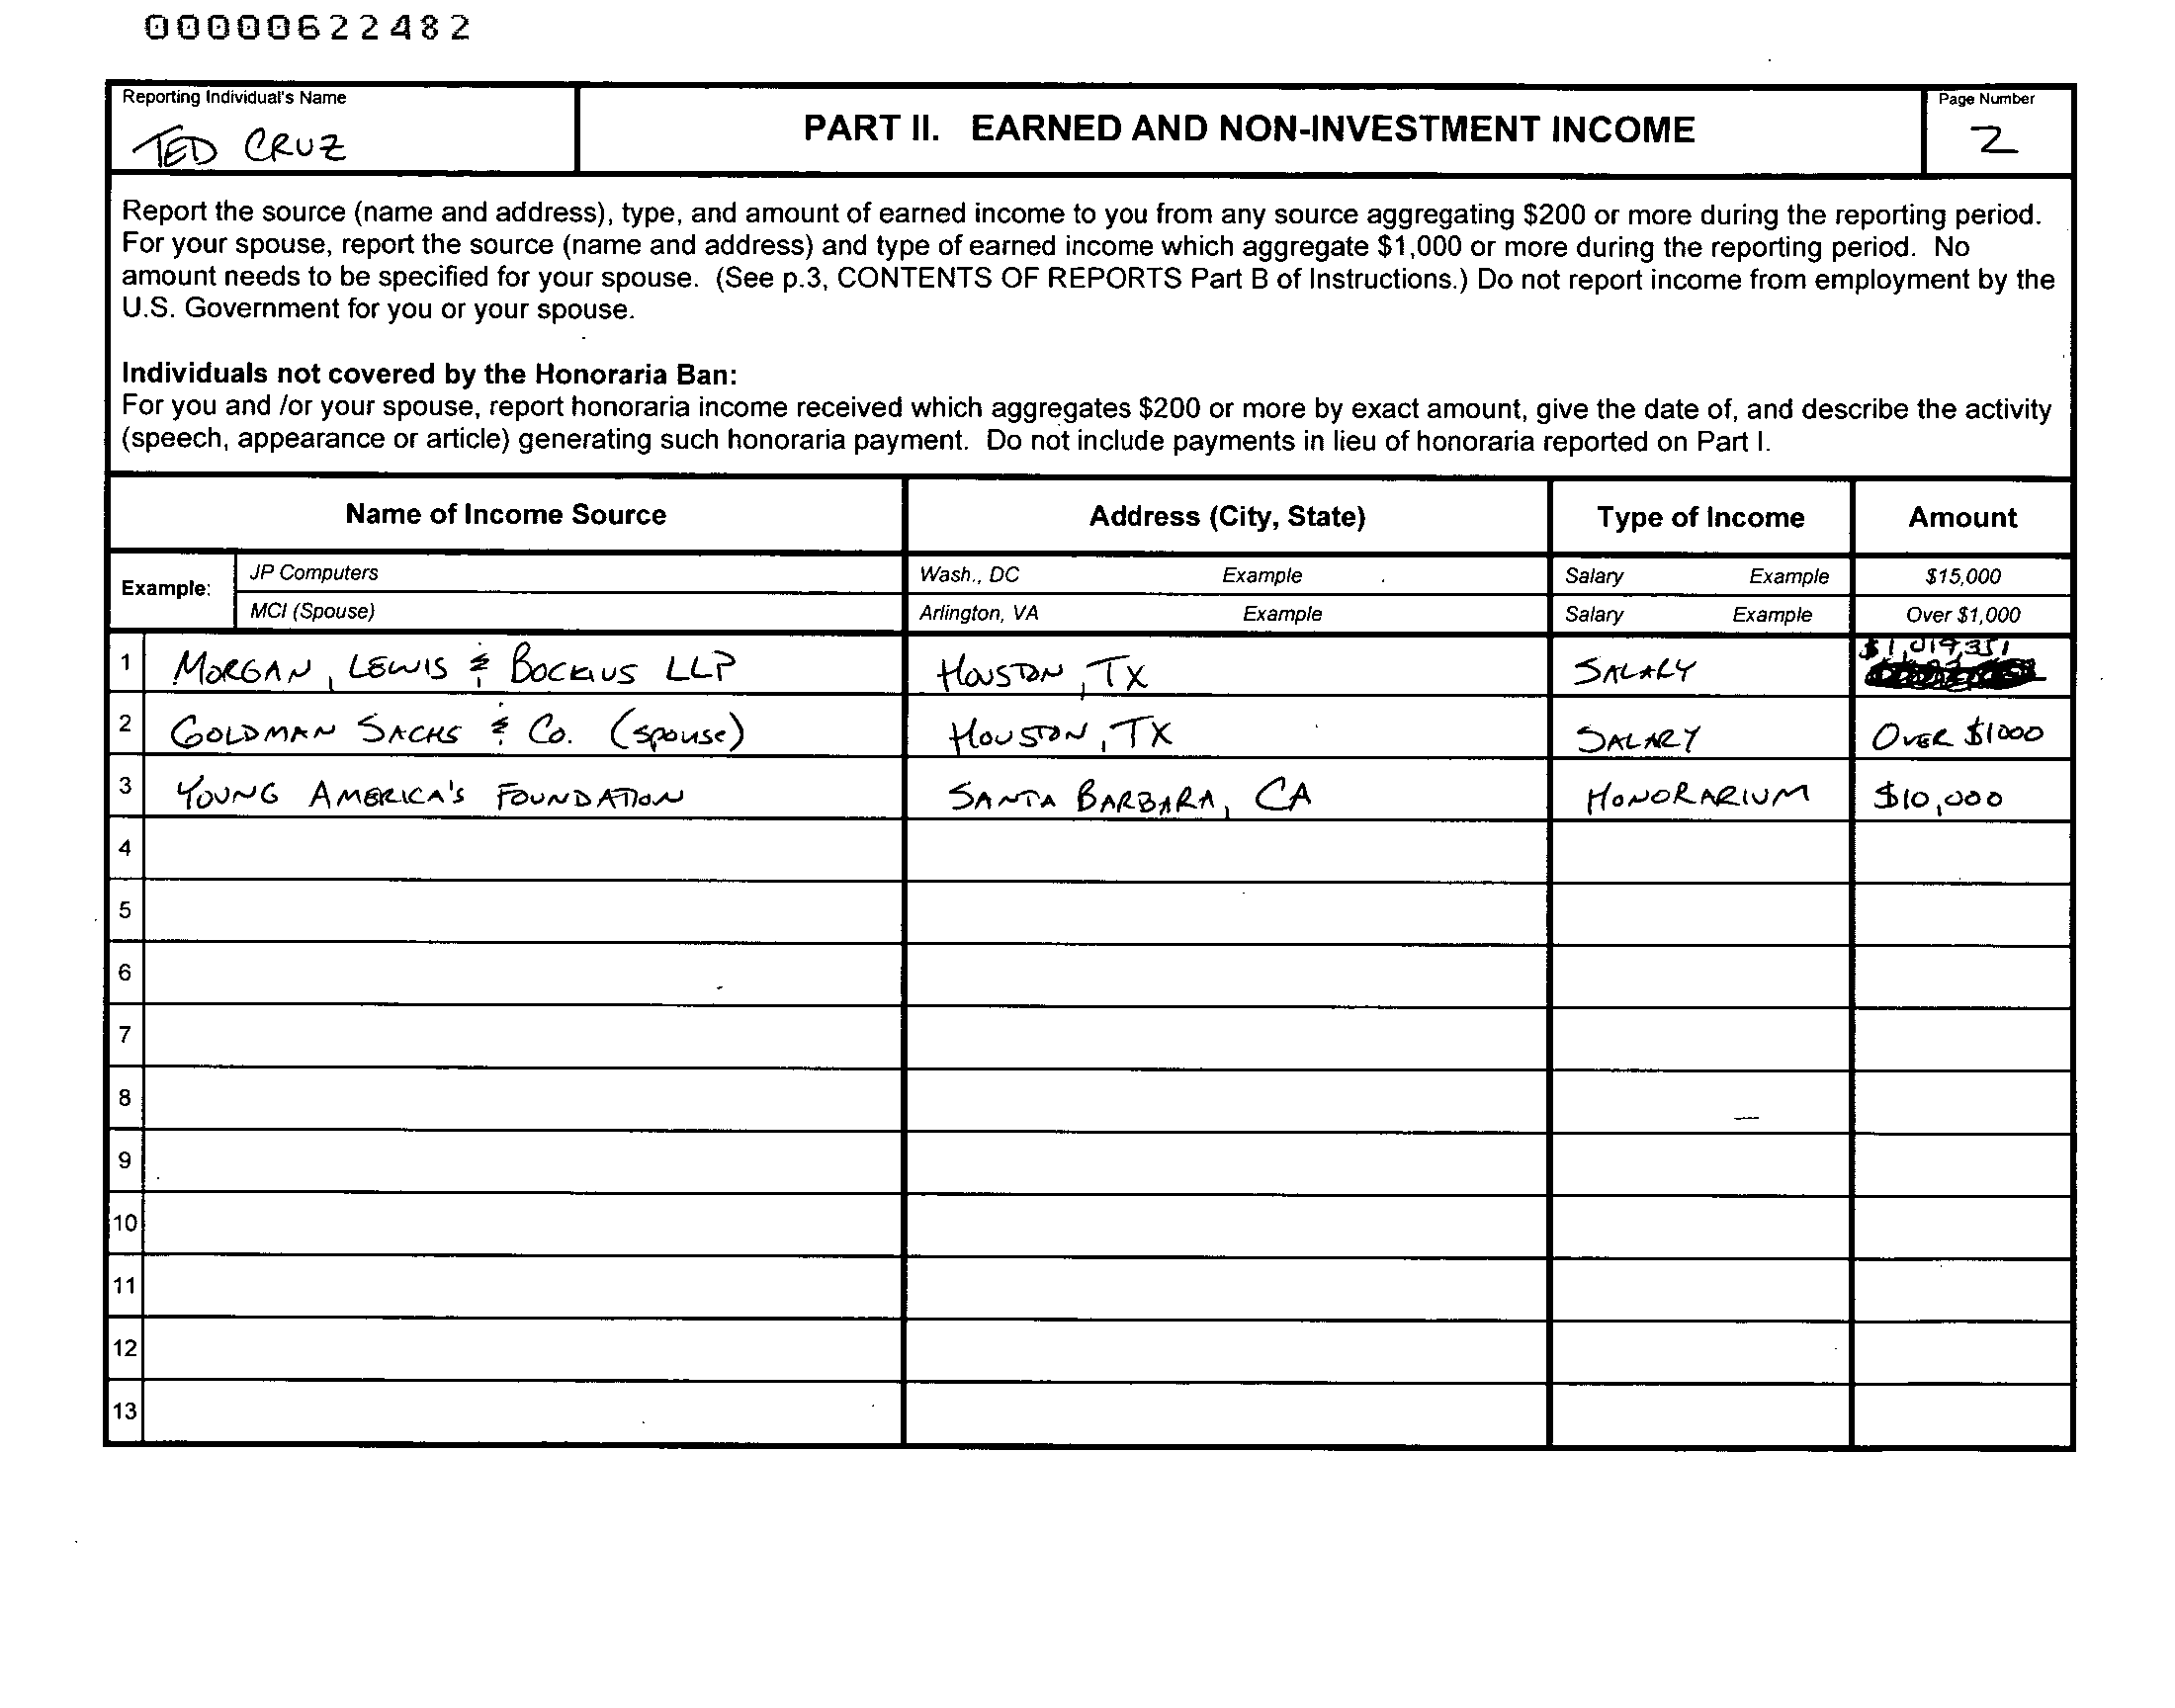 00000622482
Reporting Individual's Name
TED CRUZ
PART II. EARNED AND NON-INVESTMENT INCOME
Page Number
2
Report the source (name and address), type, and amount of earned income to you from any source aggregating $200 or more during the reporting period.
For your spouse, report the source (name and address) and type of earned income which aggregate $1,000 or more during the reporting period. No
amount needs to be specified for your spouse. (See p.3, CONTENTS OF REPORTS Part B of Instructions.) Do not report income from employment by the
U.S. Government for you or your spouse.
Individuals not covered by the Honoraria Ban:
For you and /or your spouse, report honoraria income received which aggregates $200 or more by exact amount, give the date of, and describe the activity
(speech, appearance or article) generating such honoraria payment. Do not include payments in lieu of honoraria reported on Part I.
Name of Income Source Address (City, State) Type of Income Amount
Example:
JP Computers Wash., DC Example Salary Example $15,000
MCI (Spouse) Arlington, VA Example Salary Example Over $1,000
1 MORGAN, LEWIS & BOCKIUS LLP HOUSTON, TX SALARY $1,019,351
2 GOLDMAN SACHS & CO. (SPOUSE) HOUSTON, TX SALARY OVER $1000
3 YOUNG AMERICA'S FOUNDATION SANTA BARBARA, CA HONORARIUM $10,000
4
5
6
7
8
9
10
11
12
13